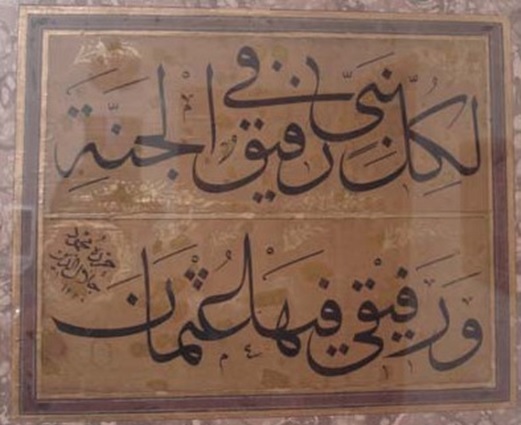 لِكُلِّ نَبِيٍّ رَفِيق فِي الجَنَّةِ
وَرَفِيقِي فِيهَا عُثْمَان
حرره محمود
جلال الدين